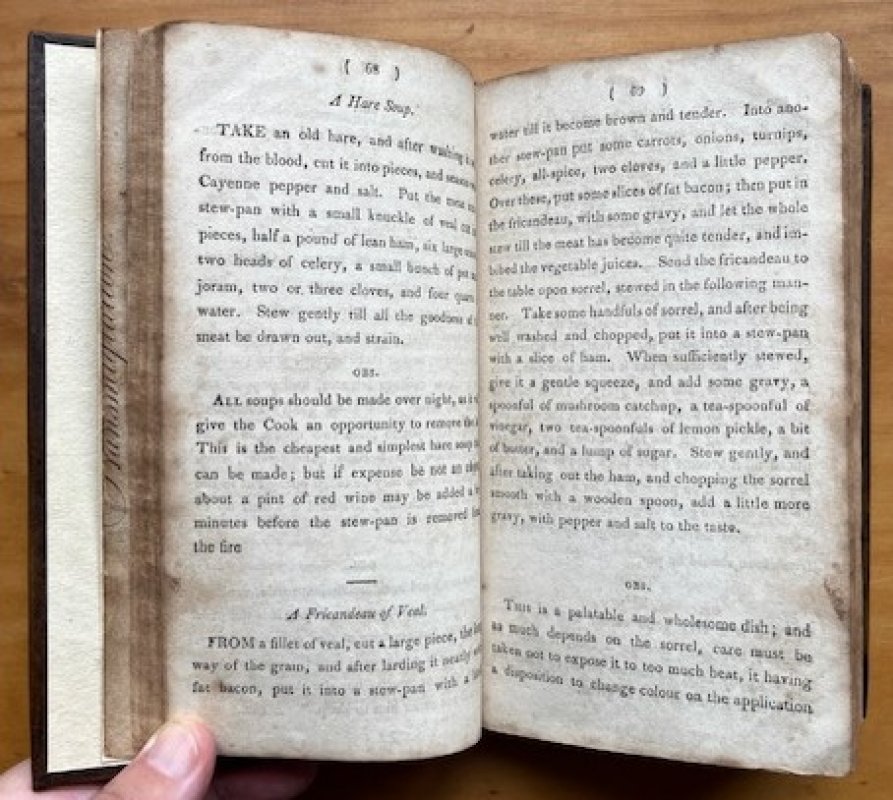 ( 68 )
A Hare Soup.
TAKE an old hare, and after washing it
from the blood, cut it into pieces, and season
Cayenne pepper and salt. Put the meat
stew-pan with a small knuckle of veal cut
pieces, half a pound of lean ham, six large
two heads of celery, a small bunch of
joram, two or three cloves, and four
water. Stew gently till all the goodness of
meat be drawn out, and strain.
OBS.
ALL soups should be made over night, as it
give the Cook an opportunity to remove the
This is the cheapest and simplest hare soup
can be made; but if expense be not an
about a pint of red wine may be added a
minutes before the stew-pan is removed
the fire
A Fricandeau of Veal.
FROM a fillet of veal, cut a large piece, the
way of the grain, and after larding it neatly
fat bacon, put it into a stew-pan with a
( 69 )
water till it become brown and tender. Into ano-
ther stew-pan put some carrots, onions, turnips,
celery, all-spice, two cloves, and a little pepper.
Over these, put some slices of fat bacon; then put in
the fricandeau, with some gravy, and let the whole
stew till the meat has become quite tender, and im-
bibed the vegetable juices. Send the fricandeau to
the table upon sorrel, stewed in the following man-
ner. Take some handfuls of sorrel, and after being
well washed and chopped, put it into a stew-pan
with a slice of ham. When sufficiently stewed,
give it a gentle squeeze, and add some gravy, a
spoonful of mushroom catchup, a tea-spoonful of
vinegar, two tea-spoonfuls of lemon pickle, a bit
of butter, and a lump of sugar. Stew gently, and
after taking out the ham, and chopping the sorrel
smooth with a wooden spoon, add a little more
gravy, with pepper and salt to the taste.
OBS.
This is a palatable and wholesome dish; and
as much depends on the sorrel, care must be
taken not to expose it to too much heat, it having
a disposition to change colour on the application